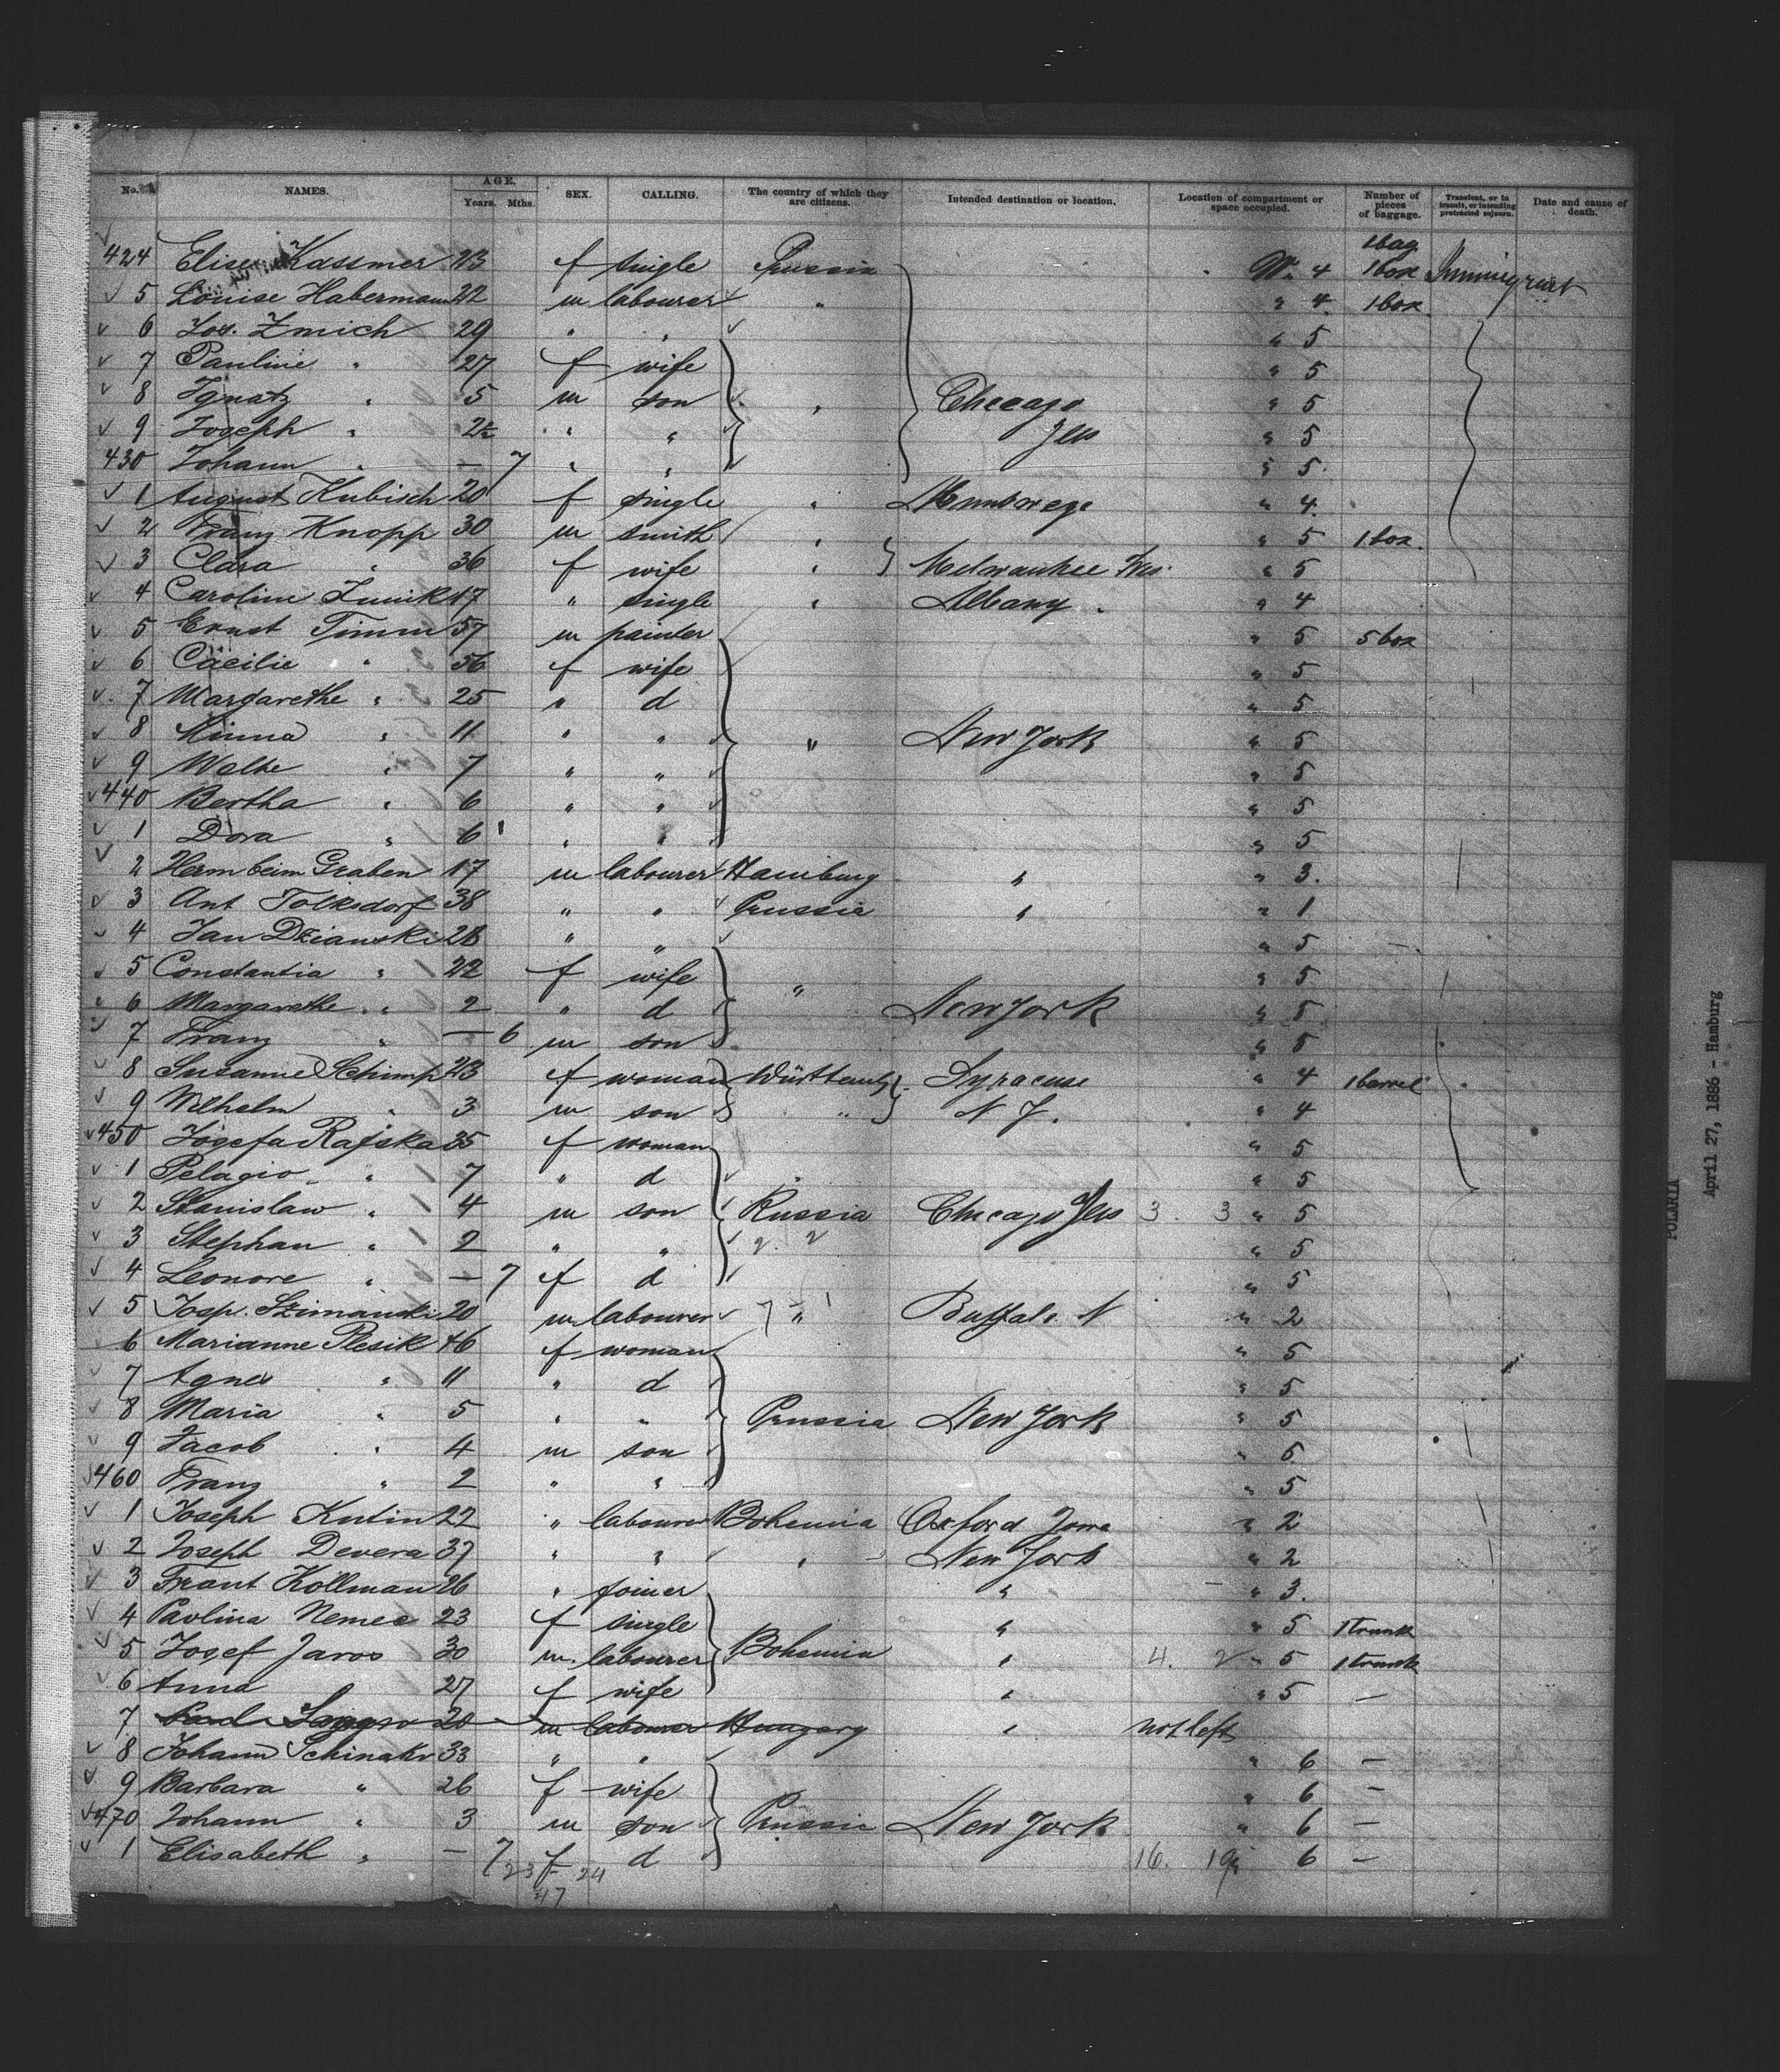 No. NAMES. AGE. Years. Mths. SEX. CALLING. The country of which they are citizens. Intended destination or location. Location of compartment or space occupied. Number of pieces of baggage. Transient, or in transit, or intending protracted sojourn. Date and cause of death.
1 bag
424 Elise Kassmer 23 f single Prussia 4 1 box Immigrant
5 Louise Habermann 22 m labourer " " 4 1 box
6 Jos. Zmich 29 " " " 5
7 Pauline " 27 f wife " 5
8 Ignatz " 5 m son " Checago " 5
9 Joseph " 2½ " " Ills " 5
430 Johann " — 7 " " " 5
1 August Kubisch 20 f single " " 4
2 Franz Knopp 30 m smith " " 5 1 box
3 Clara " 36 f wife " Milwaukee Wis. " 5
4 Caroline 17 " single " Albany " 4
5 Ernst Timm 57 m painter " 5 5 box
6 Cäcilie " 56 f wife " 5
7 Margarethe " 25 " d " 5
8 Minna " 11 " " " New York " 5
9 " 7 " " " 5
440 Bertha " 6 " " " 5
1 Dora " 6 " " " 5
2 Herm beim Graben 17 m labourer Hamburg " " 3.
3 Ant Tolksdorf 38 " " Prussia " " 1
4 Jan Dzianski 28 " " " 5 —
5 Constantia " 22 f wife " " 5
6 Margarethe " 2 " d New York " 5
7 Franz " — 6 m son " 5
8 Susanne Schimp 23 f woman Württemb Syracuse " 4 1 barrel
9 Wilhelm " 3 m son " N Y. " 4
450 Josefa Rafska 35 f woman " 5
1 Pelagio " 7 " d " 5
2 Stanislaw " 4 m son Russia Chicago Ills 3. 3 " 5
3 Stephan " 2 " " 2. 2 " 5
4 Leonore " — 7 f d " 5
5 Josp. Szimanski 20 m labourer " Buffalo N " 2
6 Marianne Plesik 46 f woman " 5
7 Agnes " 11 " d " 5
8 Maria " 5 " " Prussia New York " 5
9 Jacob " 4 m son " 5
460 Franz " 2 " " " 5
1 Joseph Kutin 22 " labourer Bohemia Oxford Jowa " 2
2 Joseph Devera 37 " " " New York " 2
3 Frant Kollman 26 " joiner " " 3.
4 Pavlina Nemec 23 f single " " 5 1 trunk
5 Josef Jaros 30 m. labourer Bohemia " 4. 2 " 5 1 trunk
6 Anna 27 f wife " " 5 —
7 20 m labourer Hungary " not left
8 Johann Schinakr 33 " " " 6 —
9 Barbara " 26 f wife " 6 —
470 Johann " 3 m son Prussia New York " 6 —
1 Elisabeth " — 7 f d 16. 19 " 6 —
23 24
47
POLARIA
April 27, 1886 - Hamburg